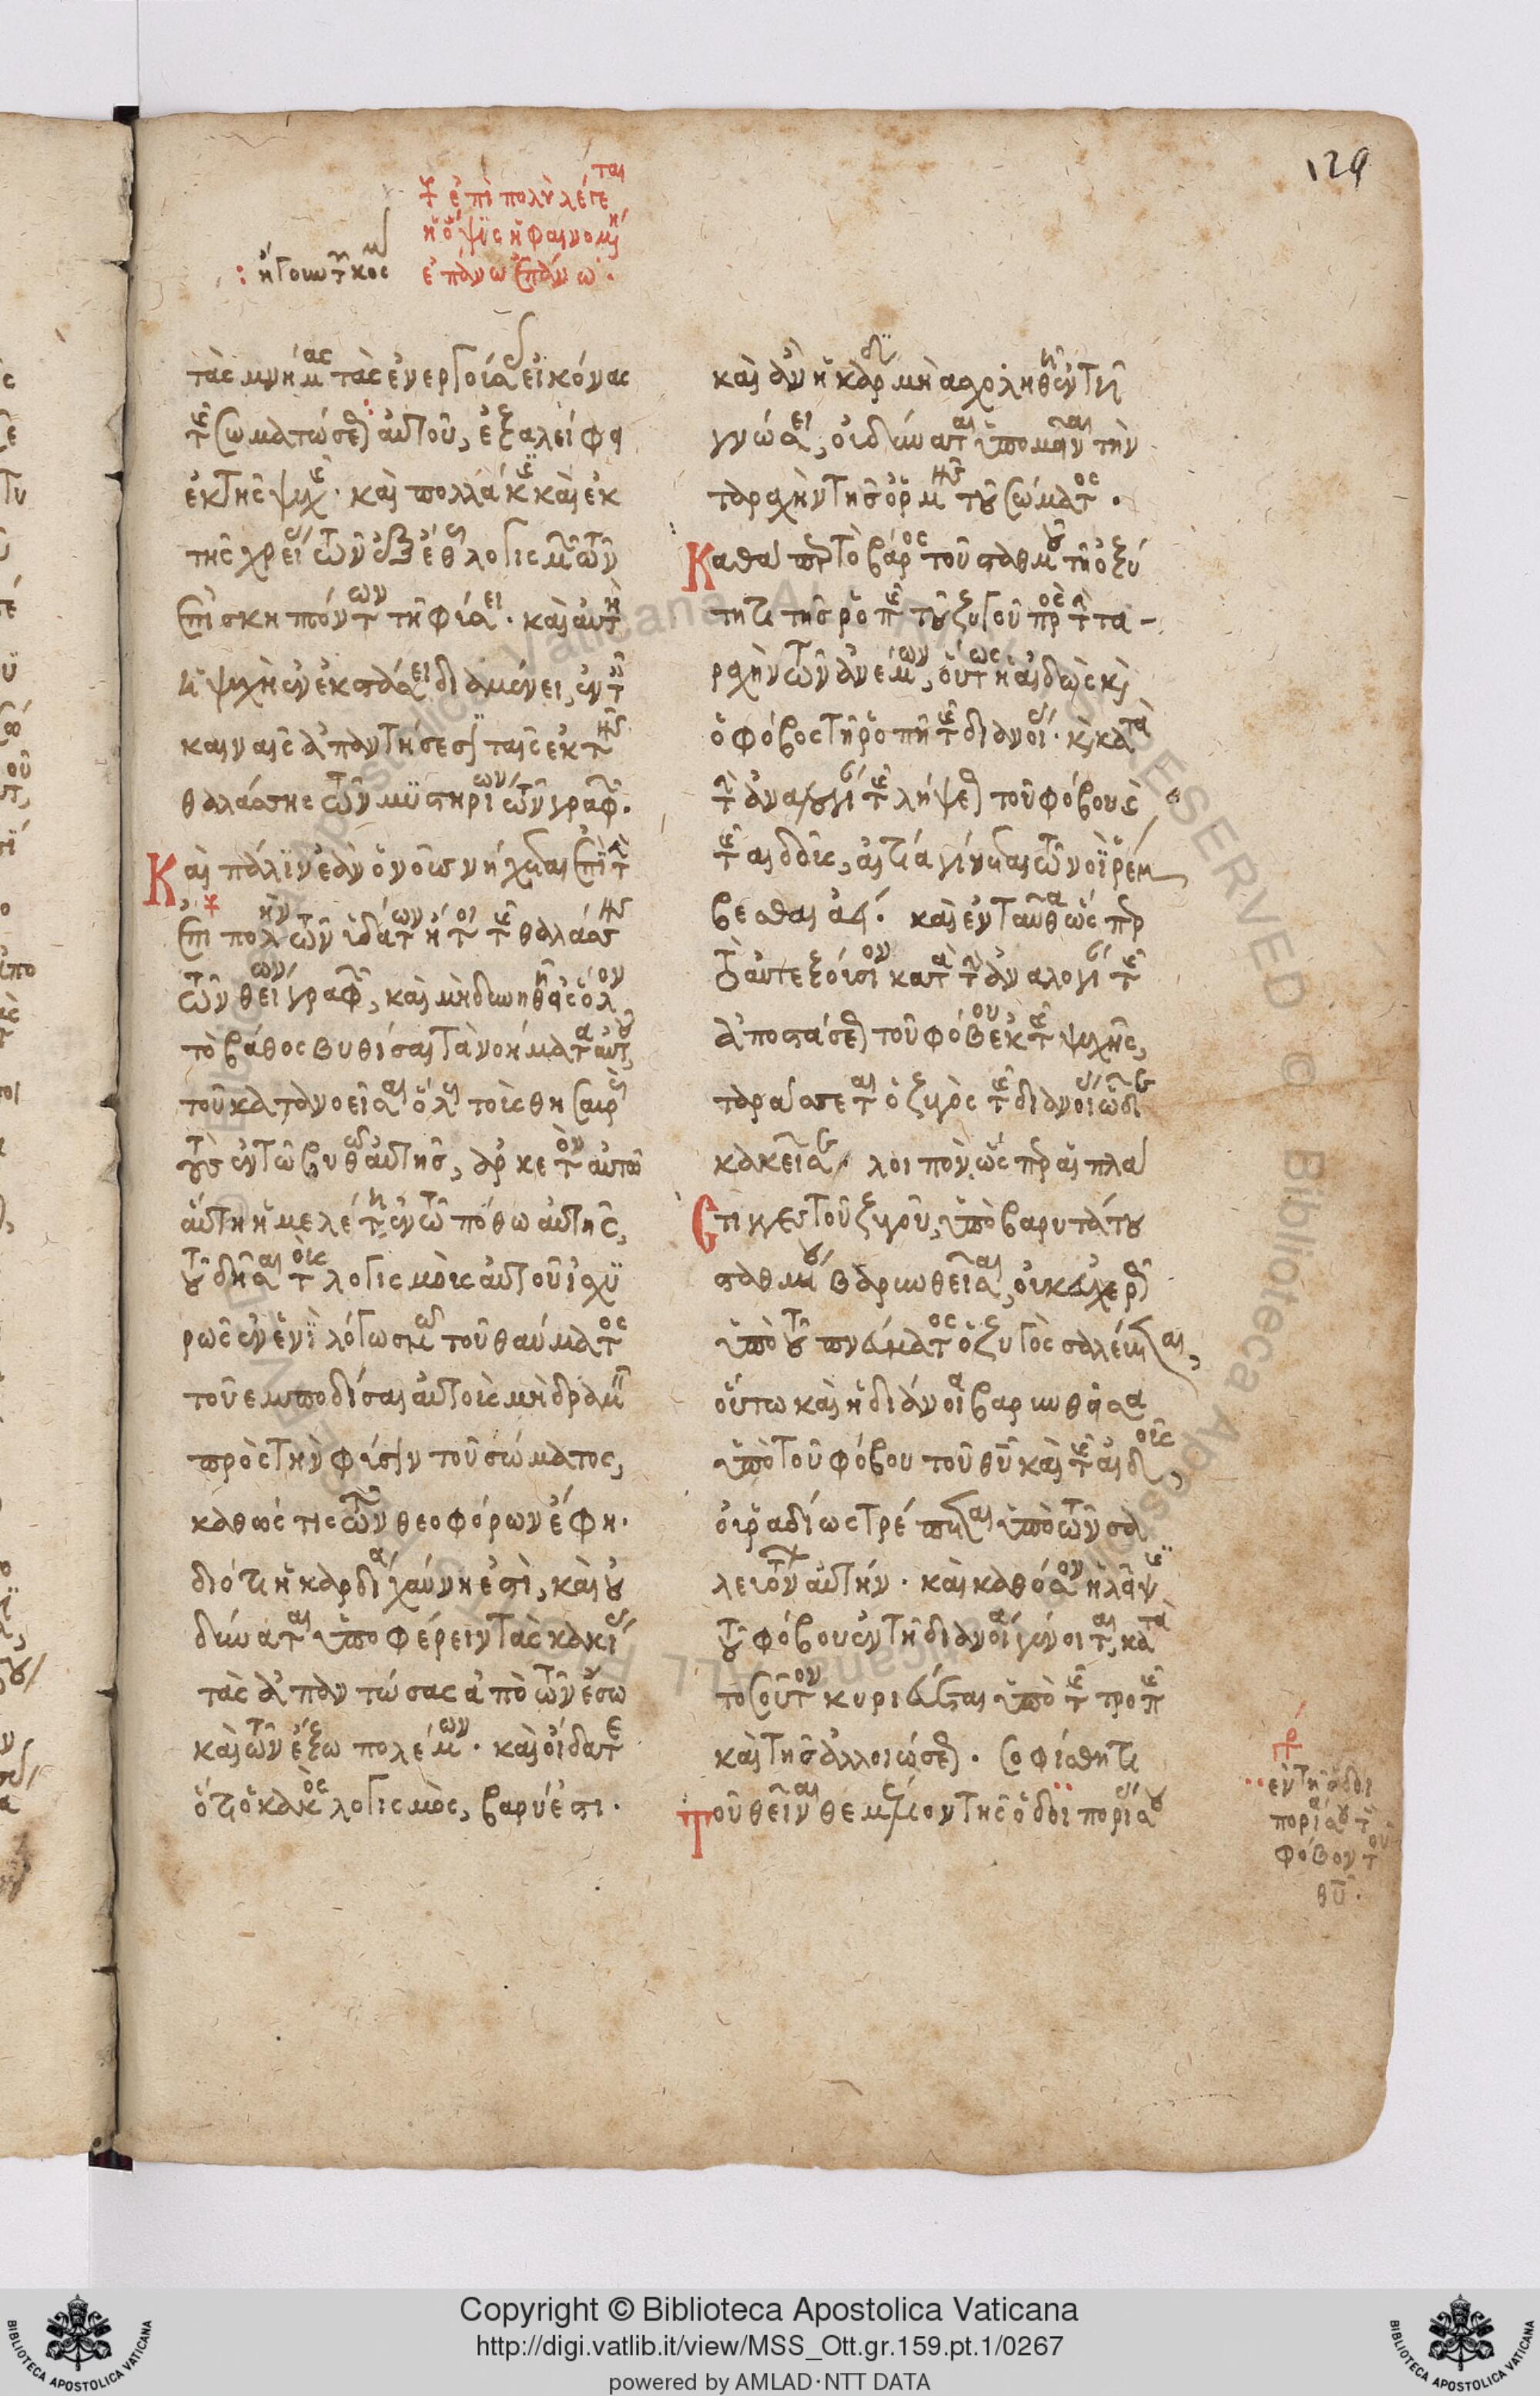 129
ἐπὶ πολὺ λέγεται
ἡ ὄψις ἡ φαινομένη
ἐπάνω ἐπάνω.
: ἤγουν
τὰς μνήμας τὰς ἐνεργούσας εἰκόνας
τῆς σωματώσεως αὐτοῦ, ἐξαλείφει
ἐκ τῆς ψυχῆς· καὶ πολλάκις καὶ ἐκ
τῆς χρείας τῶν ἐξ ἔθους λογισμῶν τῶν
ἐπισκηπτόντων τῇ φύσει. καὶ αὐτὴ
ἡ ψυχὴ ἐν ἐκστάσει διαμένει, ἐν ταῖς
καιναῖς ἀπαντήσεσι ταῖς ἐκ τῆς
θαλάσσης τῶν μυστηρίων τῶν γραφῶν.
Καὶ πάλιν ἐὰν ὁ νοῦς νήχηται ἐπὶ τὴν
ἐπιπολὴν τῶν ὑδάτων ἤτοι τῆς θαλάσσης
τῶν θείων γραφῶν, καὶ μὴ δυνηθῇ εἰς ὅλον
τὸ βάθος βυθίσαι τὰ νοήματα αὐτοῦ,
τοῦ κατανοεῖσαι ὅλους τοὺς θησαυροὺς
τοὺς ἐν τῷ βυθῷ αὐτῆς, ἀρκετὸν αὐτῷ
αὕτη ἡ μελέτη ἐν τῷ πόθω αὐτῆς,
τοῦ δῆσαι τοὺς λογισμοὺς αὐτοῦ ἰσχυ
ρῶς ἐν ἑνὶ λογισμῷ τοῦ θαύματος
τοῦ ἐμποδίσαι αὐτοὺς μὴ δραμεῖν
πρὸς τὴν φύσιν τοῦ σώματος,
καθώς τις τῶν θεοφόρων ἔφη.
διότι ἡ καρδία χαύνη ἐστὶ, καὶ οὐ
δύναται ὑποφέρειν τὰς κακίας
τὰς ἀπαντώσας ἀπὸ τῶν ἔσω
καὶ τῶν ἔξω πολέμων. καὶ οἴδατε
ὅτι ὁ κακὸς λογισμὸς, βαρύ ἐστι.
καὶ ἂν ἡ καρδία μὴ ἀσχοληθῇ ἐν τῇ
γνώσει, οὐ δύναται ὑπομεῖναι τὴν
ταραχὴν τῆς ὁρμῆς τοῦ σώματος.
Καθάπερ τὸ βάρος τοῦ σταθμοῦ τῇ ὀξύ
τητι τῆς ῥοπῆς τοῦ ζυγοῦ πρὸς τὴν τα-
ραχὴν τῶν ἀνέμων, οὕτως ἡ αἰδὼς καὶ
ὁ φόβος τῇ ῥοπῇ τῆς διανοίας. καὶ κατὰ
τὴν ἀναλογίαν τῆς λήψεως τοῦ φόβου καὶ
τῆς αἰδοῦς, αἰτία γίνεται τῶν νοῒ ῥέμ
βεσθαι ἀεί. καὶ ἐνταῦθα ὥσπερ
τὸ αὐτεξούσιον κατὰ τὴν ἀναλογίαν τῆς
ἀποστάσεως τοῦ φόβου ἐκ τῆς ψυχῆς,
ταράσσεται ὁ ζυγὸς τῆς διανοίας ὧδε
κακεῖσε. λοιπὸν ὥσπερ αἱ πλά
στιγγες τοῦ ζυγοῦ, ὑπὸ βαρυτάτου
σταθμοῦ βαρυνθεῖσαι, οὐκ εὐχερῶς
ὑπὸ τοῦ πνεύματος ὁ ζυγὸς σαλεύεται,
οὕτω καὶ ἡ διάνοια βαρυνθεῖσα
ὑπὸ τοῦ φόβου τοῦ θυ καὶ τῆς αἰδοῦς,
οὐ ῥαδίως τρέπεται ὑπὸ τῶν σα
λευόντων αὐτήν. καὶ καθόσον ἡ λεῖψις
τοῦ φόβου ἐν τῇ διανοίᾳ γένοιται, κατὰ
τοσοῦτον κυριεύεται ὑπὸ τῆς τροπῆς
καὶ τῆς ἀλλοιώσεως. σοφίσθητι
τοῦ θεῖναι θεμέλιον τῆς ὁδοιπορίας σου
ἐν τῇ ὁδοι
πορίᾳ σου τὸν
φόβον τοῦ
θυ.
Copyright © Biblioteca Apostolica Vaticana
http://digi.vatlib.it/view/MSS_Ott.gr.159.pt.1/0267
powered by AMLAD·NTT DATA